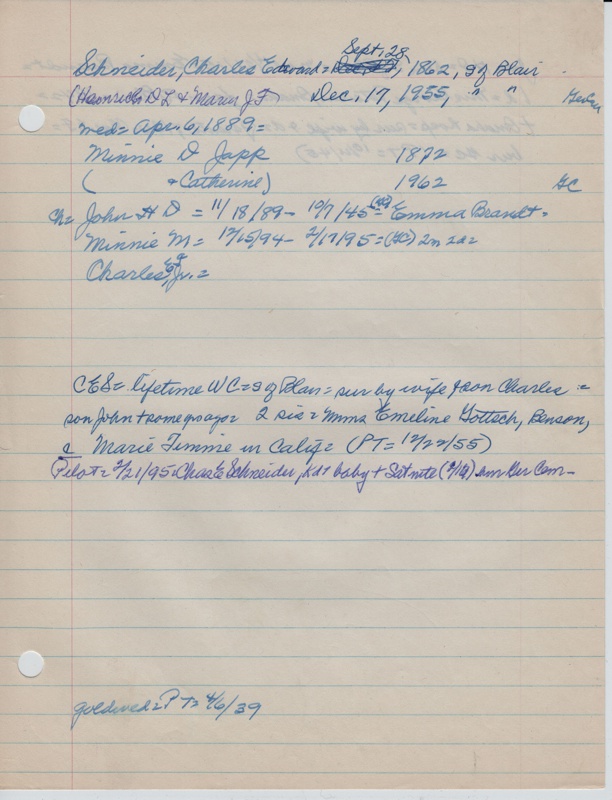 Sept. 28
Schneider, Charles Edward = , 1862, s of Blair
(Heinrich D L & Maria J F Dec. 17, 1955, " " GerCem
wed = Apr. 6, 1889 =
Minnie D Japp 1872
( & Catherine) 1962 GC
ch = John H D = 11/18/89 - 10/7/45 (GC) = Emma Brandt =
Minnie M = 12/15/94 - 2/17/95 = (GC) 2m 2d =
Charles E Jr. =
CES = lifetime WC = s of Blair = sur by wife & son Charles =
son John + some yrs ago = 2 sis = Mmes Emeline Gottsch, Benson,
& Marie Timme in Calif = (PT = 12/22/55)
Pilot = 2/21/95 = Chas E Schneider, baby + Sat nite ( ) Ger Cem -
gold wed = PT = 4/6/39